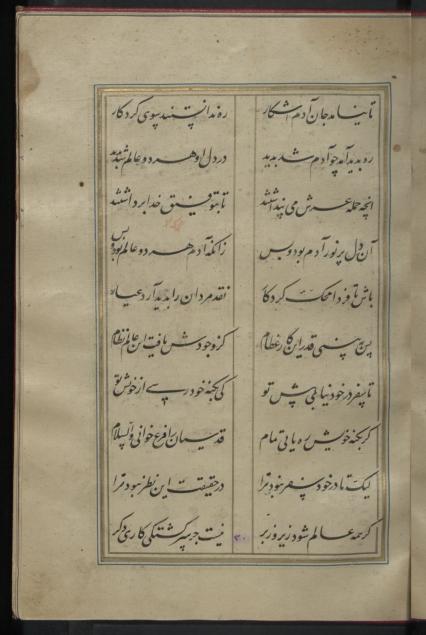 تا نیامد جان آدم آشکار ره ندانستند سوی کردکار
ره بدید آمد چو آدم شد بدید در دل او هر دو عالم شد بدید
آنچه جمله عرش می پنداشتند تا بتوفیق خدا برداشتند
آن دل پر نور آدم بود و بس زانکه آدم هر دو عالم بود و بس
باش تا فردا محک کردکار نقد مردان را بدید آرد عیار
پس ببینی قدر این کار عظام کز وجودش یافت این عالم نظام
تا سفر در خود نیاری پیش تو کی بکنه خود رسی از خویش تو
کر بکنه خویش ره یابی تمام قدسیان را فرع خوانی والسلام
لیک تا در خود سفر نبود ترا در حقیقت این نظر نبود ترا
کر همه عالم شود زیر و زبر نیست جز سرکشتکی کاری دکر